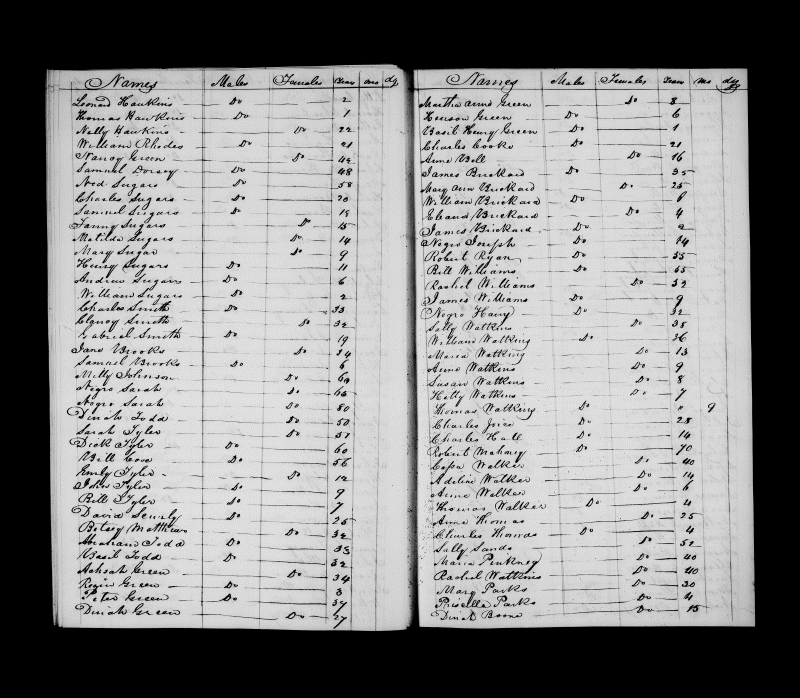 Names Males Females Years ms dy
Leonard Hawkins Do 2
Thomas Hawkins Do 1
Nelly Hawkins Do 22
William Rhodes Do 21
Nancy Green Do
Samuel Dorsey Do 48
Ned Sugars Do 58
Charles Sugars Do 20
Samuel Sugars Do 18
Fanny Sugars Do 15
Matilda Sugars Do 14
Mary Sugar Do 9
Henry Sugars Do 11
Andrew Sugars Do 6
William Sugars Do 2
Charles Smith Do 33
Clancy Smith Do 32
Gabriel Smith Do 19
Jane Brooks Do 24
Samuel Brooks Do 6
Milly Johnson Do 60
Negro Sarah Do 65
Negro Sarah Do 80
Dinah Todd Do 50
Sarah Tyler Do 57
Dick Tyler Do 60
Bill Do 56
Emily Tyler Do 12
John Tyler Do 9
Bill Tyler Do 7
David Do 25
Betsey Matthews Do 32
Abraham Todd Do 33
Basil Todd Do 32
Achsah Green Do 34
Green Do 3
Peter Green Do 37
Dinah Green Do 27
Names Males Females Years Mo dys
Martha Anne Green Do 8
Green Do 6
Basil Henry Green Do 1
Charles Cooke Do 21
Anne Bell Do 16
James Brickard Do 35
Mary Ann Brickard Do 25
William Brickard Do
Brickard Do 4
James Brickard Do 2
Negro Joseph Do 74
Robert Ryan Do 55
Bill Williams Do 65
Rachel Williams Do 52
James Williams Do 9
Negro Harry Do 32
Sally Watkins Do 38
William Watkins Do 36
Maria Watkins Do 13
Anne Watkins Do 9
Susan Watkins Do 8
Kitty Watkins Do 7
Thomas Watkins Do " 9
Charles Do 28
Charles Hall Do 14
Robert Mahoney Do 70
Walker Do 40
Adeline Walker Do 14
Anne Walker Do 6
Thomas Walker Do 4
Anne Thomas Do 25
Charles Thomas Do 4
Sally Sands Do 52
Maria Pinkney Do 40
Rachel Watkins Do 40
Mary Parks Do 30
Priscilla Parks Do 4
Dinah Boone Do 15